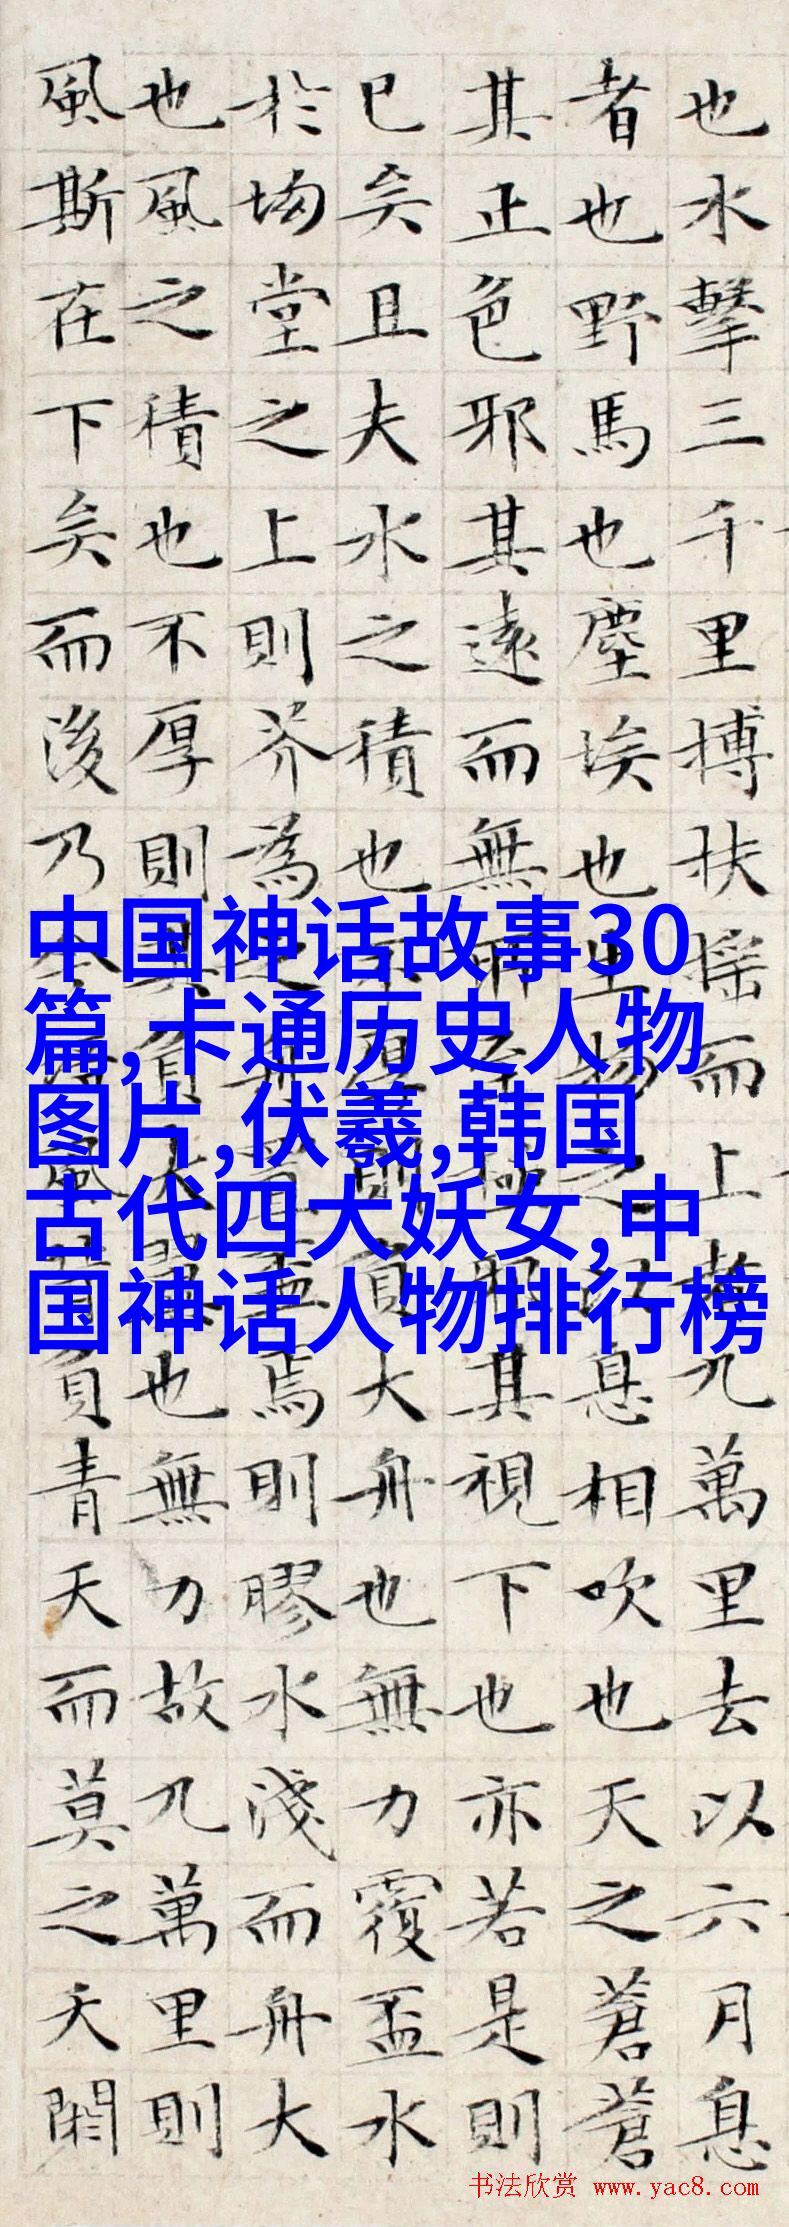 也水擊三千里搏扶摇而上者九萬里去以六月息
者也野馬也塵埃也生物之以息相吹也天之蒼蒼
其正色邪其遠而無所至極邪其視下也亦若是則
已矣且夫水之積也不厚則負大舟也無力覆盃水
於坳堂之上則芥為之舟置盃焉則膠水淺而舟大
也風之積也不厚則其負大翼也無力故九萬里則
風斯在下矣而後乃今培風背負青天而莫之夭閼
中国神话故事30
篇,卡通历史人物
图片,伏羲,韩国
古代四大妖女,中
国神话人物排行榜
书法欣赏 www.yac8.com